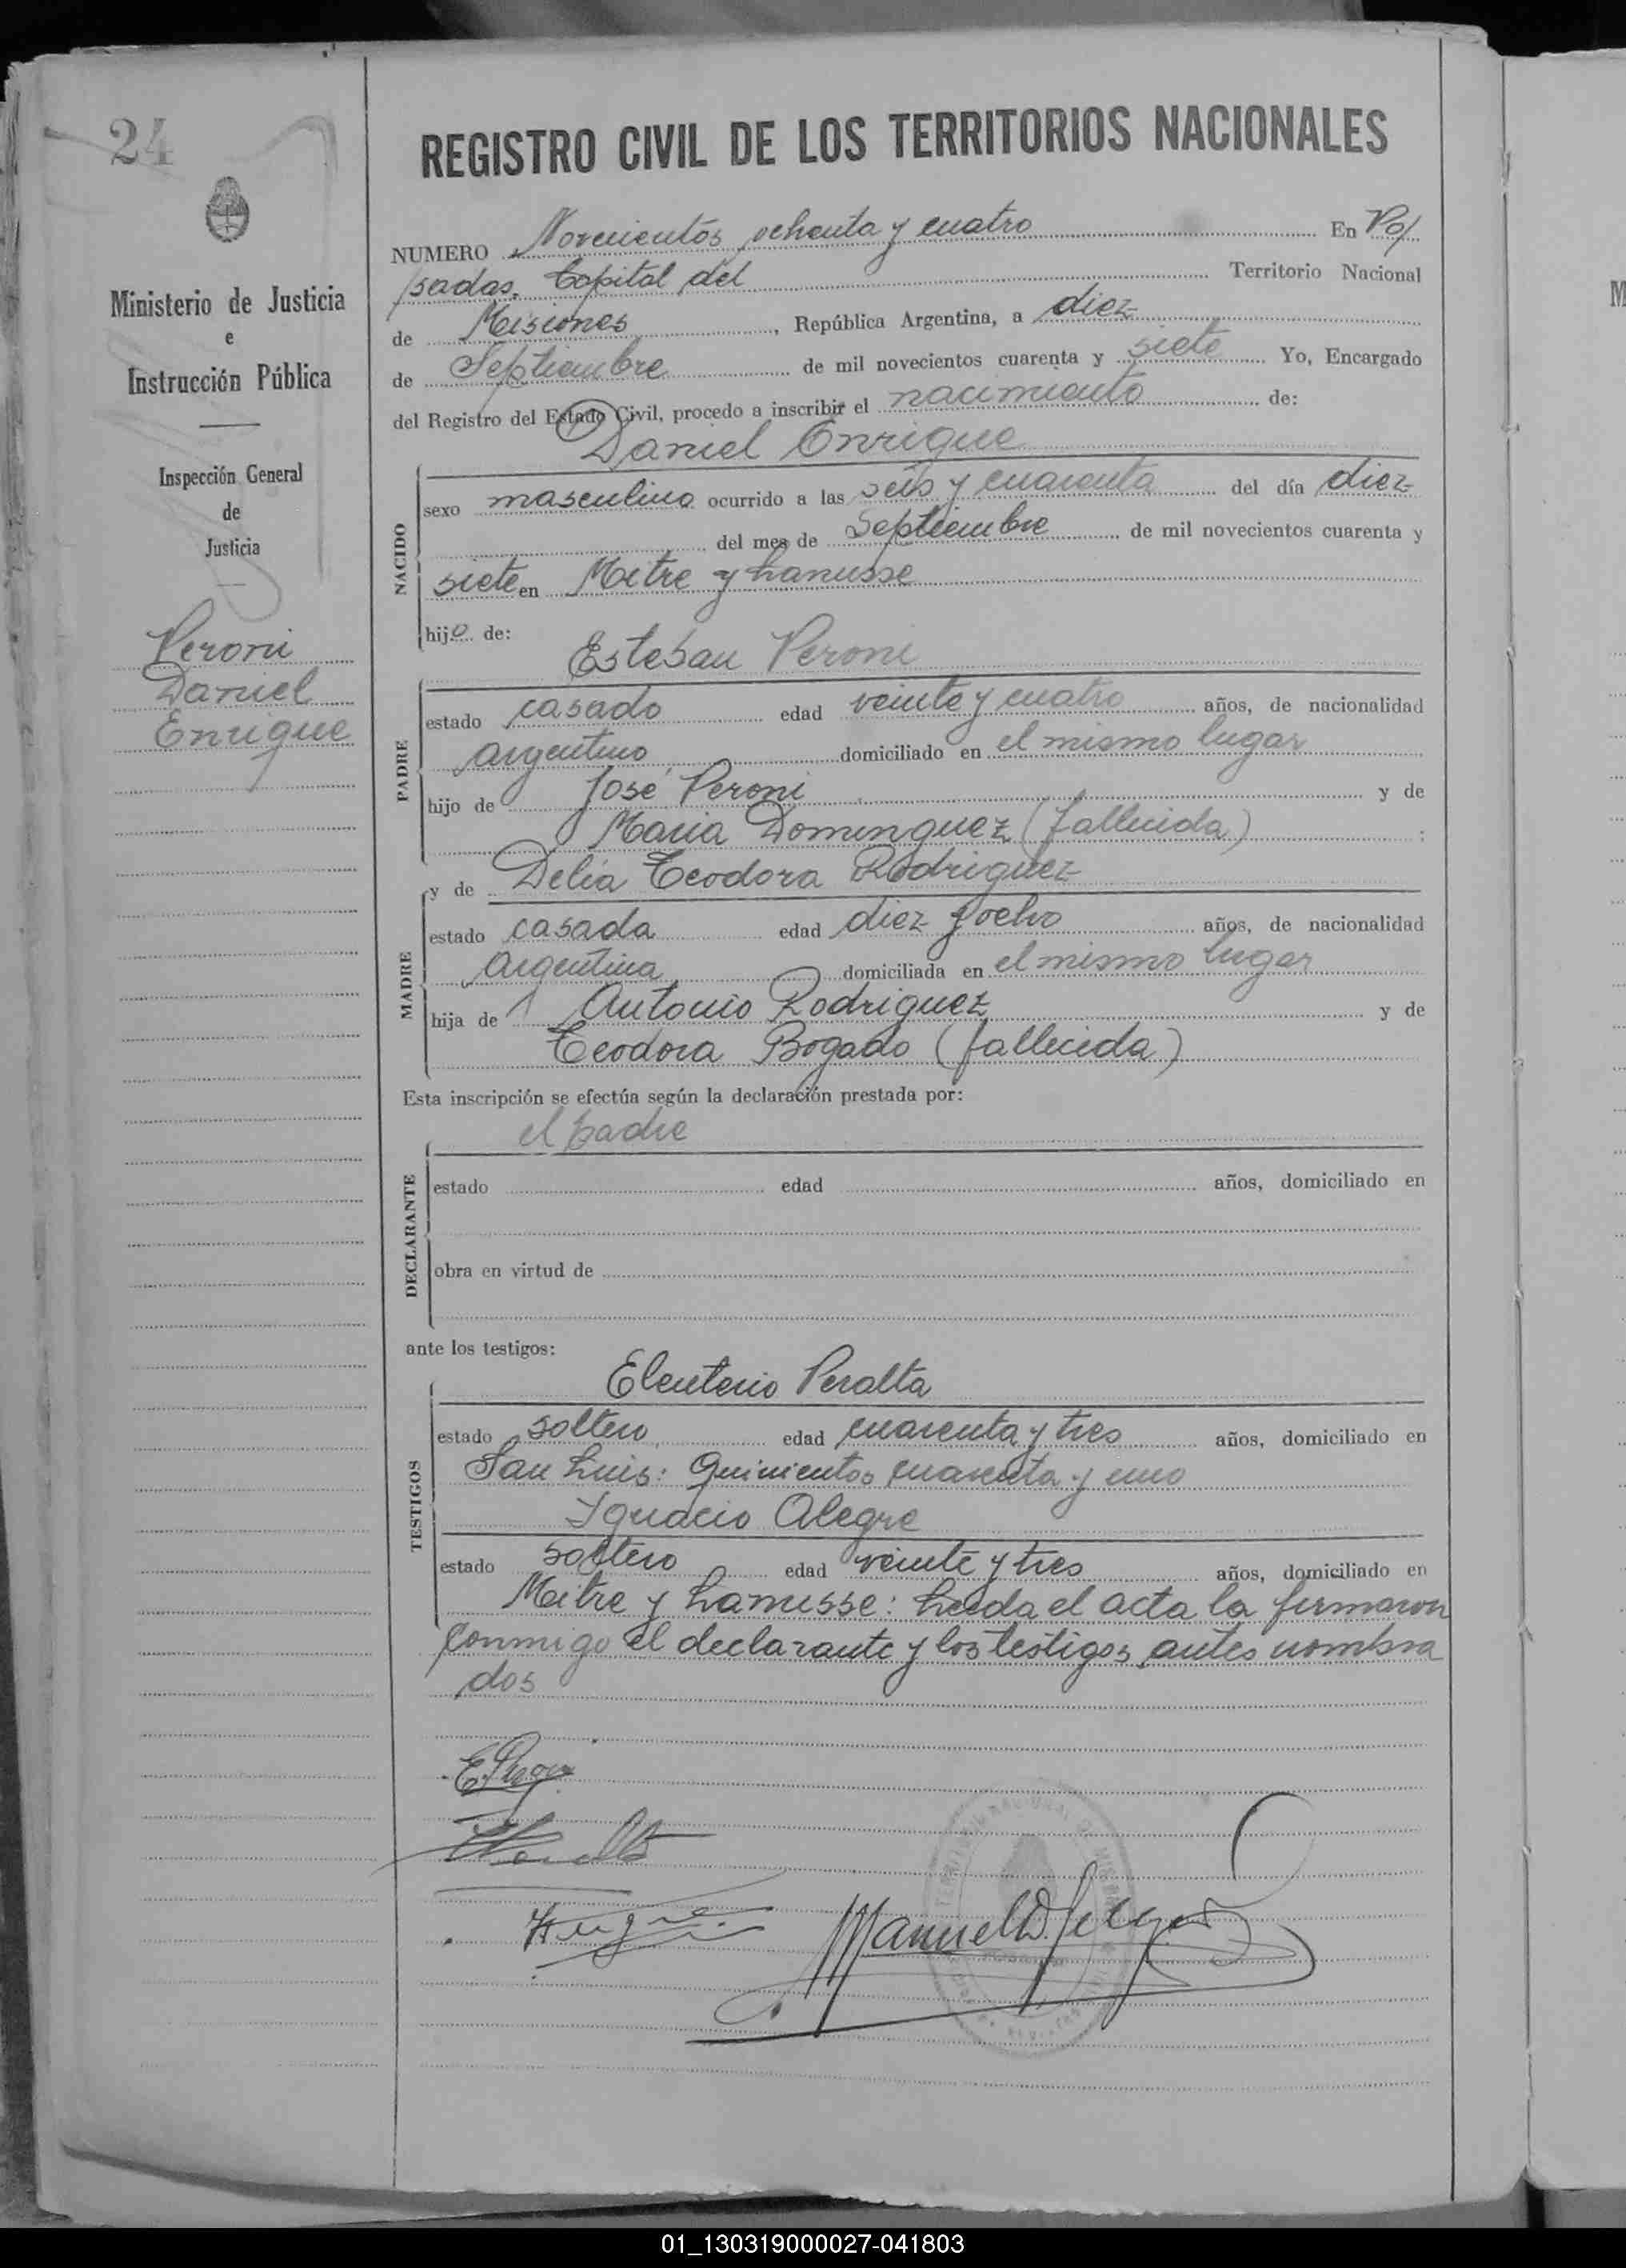 24
Ministerio de Justicia
e
Instrucción Pública
Inspección General
de
Justicia
Peroni
Daniel
Enrique
REGISTRO CIVIL DE LOS TERRITORIOS NACIONALES
NUMERO Novecientos ochenta y cuatro En Po/
/sadas, Capital del Territorio Nacional
de Misiones, República Argentina, a diez
de Septiembre de mil novecientos cuarenta y siete Yo, Encargado
del Registro del Estado Civil, procedo a inscribir el nacimiento de:
Daniel Enrique
NACIDO
sexo masculino ocurrido a las seis y cuarenta del día diez
del mes de Septiembre de mil novecientos cuarenta y
siete en Mitre y Lanusse
hijo de:
Esteban Peroni
PADRE
estado casado edad veinte y cuatro años, de nacionalidad
argentino domiciliado en el mismo lugar
hijo de José Peroni y de
Maria Dominguez (fallecida) ;
y de Delia Teodora Rodriguez
MADRE
estado casada edad diez y ocho años, de nacionalidad
Argentina domiciliada en el mismo lugar
hija de Antonio Rodriguez y de
Teodora Bogado (fallecida)
Esta inscripción se efectúa según la declaración prestada por:
el padre
DECLARANTE
estado edad años, domiciliado en
obra en virtud de
ante los testigos:
Eleuterio Peralta
TESTIGOS
estado soltero edad cuarenta y tres años, domiciliado en
San Luis: Quinientos cuarenta y uno
Ignacio Alegre
estado soltero edad veinte y tres años, domiciliado en
Mitre y Lanusse: Leida el acta la firmaron
conmigo el declarante y los testigos antes nombra
dos
Manuel D.
01_130319000027-041803